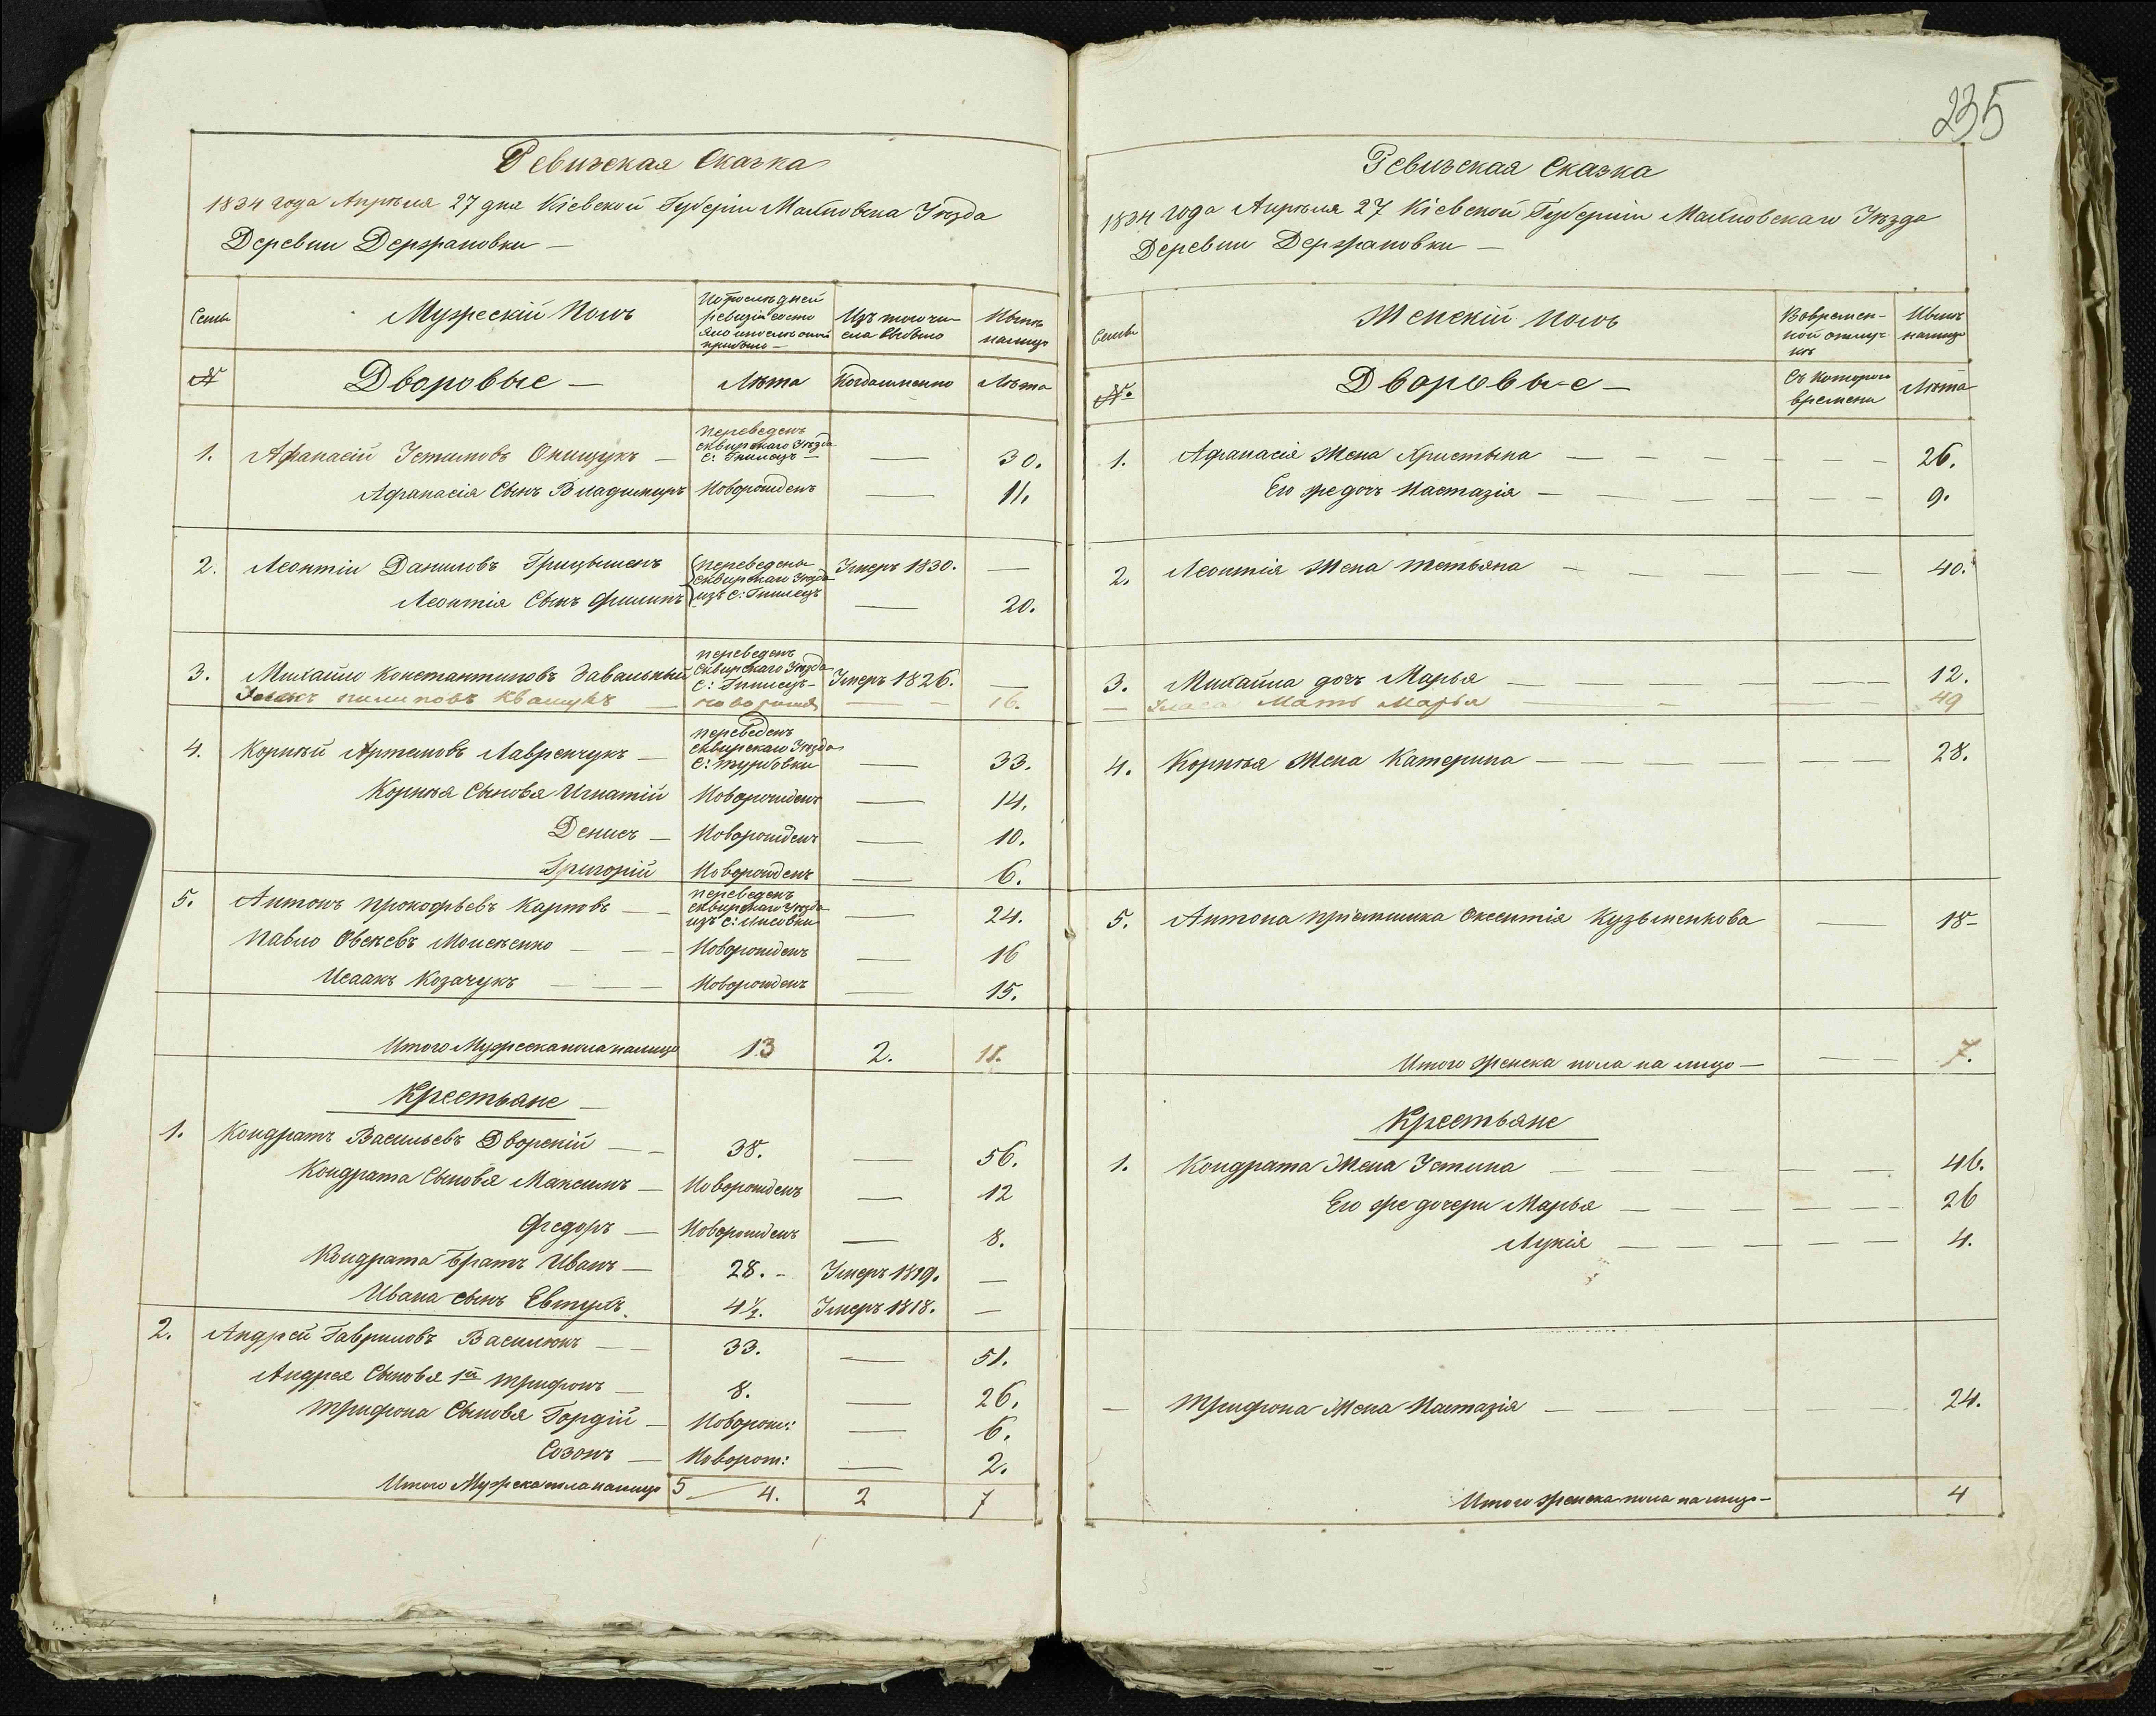 235
Ревизская Сказка
1834 года Апрѣля 27 дня Кіевской Губерніи Махновска Уѣзда
Деревни Держановки —
Семьи
Мужескій Полъ
По послѣдней ревизіи состояло и послѣ оной прибыло —
Изъ того числа выбыло
Нынѣ налицо
№
Дворовые —
Лѣта
Когда именно
Лѣта
1. Афанасій Устимовъ Онищукъ — переведенъ Сквирскаго Уѣзда С: — — 30.
Афанасія Сынъ Владимиръ Новорожденъ — 11.
2. Леонтій Даниловъ Грицышенъ переведены Сквирскаго Уѣзда Умеръ 1830. —
Леонтія Сынъ Филипъ изъ С: — 20.
3. Михайло Константиновъ Завальный переведенъ Сквирскаго Уѣзда С: — Умеръ 1826. —
пилиповъ Квашукъ — новорожд — — 16.
4. Корнѣй Артемовъ Лавренчукъ — переведенъ Сквирскаго Уѣзда С: Турбовки — 33.
Корнѣя Сыновья Игнатій Новорожденъ — 14.
Денисъ — Новорожденъ — 10.
Григорій Новорожденъ — 6.
5. Антонъ Прокофьевъ Карповъ — — переведенъ Сквирскаго Уѣзда изъ С: Лисовки — 24.
Павло Овсѣевъ Моисѣенко — — — Новорожденъ — 16
Исаакъ Козачукъ — — — Новорожденъ — 15.
Итого Мужеска пола налицо 13 2. 11.
Крестьяне —
1. Кондратъ Васильевъ Дворскій — — 38. — 56.
Кондрата Сыновья Максимъ — Новорожденъ — 12
Федоръ — Новорожденъ — 8.
Кондрата братъ Иванъ — 28. — Умеръ 1819. —
Ивана сынъ Евтухъ. 4½. Умеръ 1818. —
2. Андрей Гавриловъ Василюкъ — — 33. — 51.
Андрея Сыновья 1й Трифонъ — 8. — 26.
Трифона Сыновья Гордій — Новорож: — 6.
Созонъ — Новорож: — 2.
Итого Мужеска пола налицо 5 4. 2 7
Ревизская Сказка
1834 года Апрѣля 27 Кіевской Губерніи Махновскаго Уѣзда
Деревни Держановки —
Семьи
Женскій полъ
Во временной отлучкѣ
Нынѣ налицо
№.
Дворовые —
Съ котораго времени
Лѣта
1. Афанасія Жена Христына — — — — — — 26.
Его же дочь Настазія — — — — — — 9.
2. Леонтія Жена Тетьяна — — — — — 40.
3. Михайла дочь Марья — — — — 12.
— Мать Марья — — — 49
4. Корнѣя Жена Катерина — — — — — — 28.
5. Антона пріемника Оксентія Кузьменкова — 18-
Итого женска пола на лицо — — — 7.
Крестьяне
1. Кондрата Жена Устина — — — — — 46.
Его же дочери Марья — — — — — — 26
Лукія — — — — — 4.
— Трифона Жена Настазія — — — — — — 24.
Итого женска пола на лицо — 4